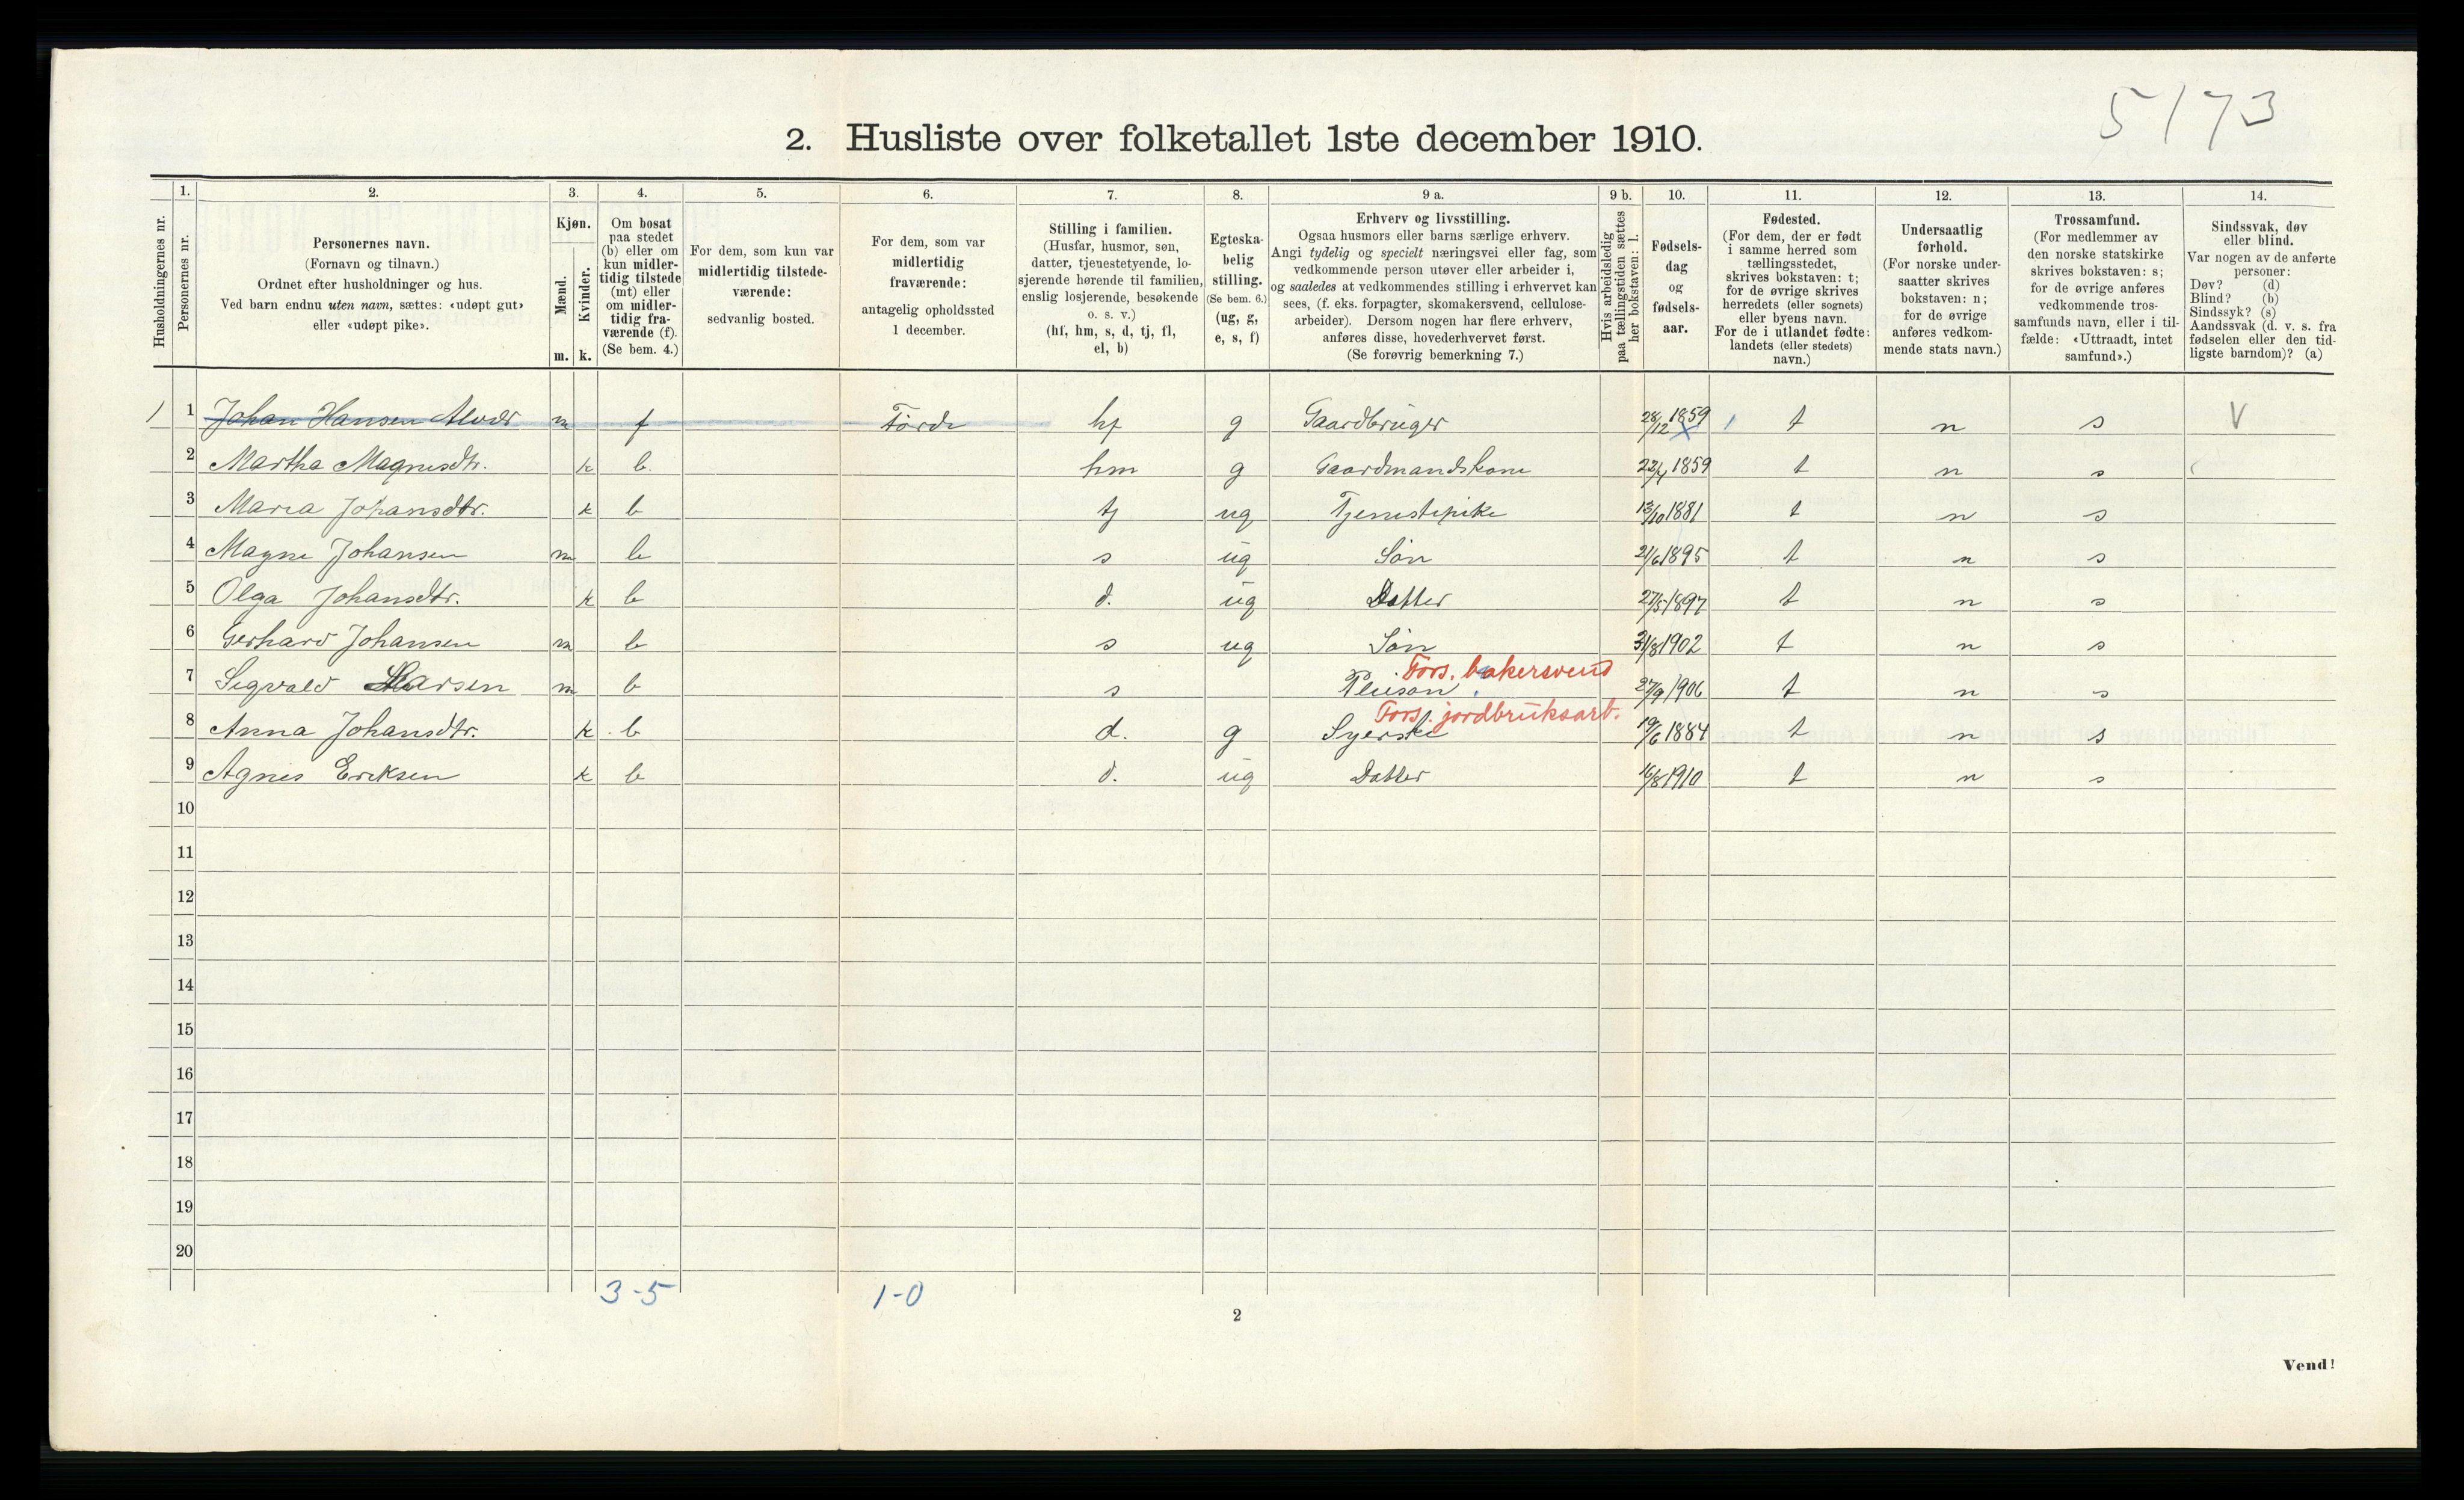 5173
2. Husliste over folketallet 1ste december 1910.
Husholdningernes nr.
1.
Personernes nr.
2.
Personernes navn.
(Fornavn og tilnavn.)
Ordnet efter husholdninger og hus.
Ved barn endnu uten navn, sættes: «udøpt gut»
eller «udøpt pike».
3.
Kjøn.
Mænd.
Kvinder.
m. k.
4.
Om bosat
paa stedet
(b) eller om
kun midler-
tidig tilstede
(mt) eller
om midler-
tidig fra-
værende (f).
(Se bem. 4.)
5.
For dem, som kun var
midlertidig tilstede-
værende:
sedvanlig bosted.
6.
For dem, som var
midlertidig
fraværende:
antagelig opholdssted
1 december.
7.
Stilling i familien.
(Husfar, husmor, søn,
datter, tjenestetyende, lo-
sjerende hørende til familien,
enslig losjerende, besøkende
o. s. v.)
(hf, hm, s, d, tj, fl,
el, b)
8.
Egteska-
belig
stilling.
(Se bem. 6.)
(ug, g,
e, s, f)
9 a.
Erhverv og livsstilling.
Ogsaa husmors eller barns særlige erhverv.
Angi tydelig og specielt næringsvei eller fag, som
vedkommende person utøver eller arbeider i,
og saaledes at vedkommendes stilling i erhvervet kan
sees, (f. eks. forpagter, skomakersvend, cellulose-
arbeider). Dersom nogen har flere erhverv,
anføres disse, hovederhvervet først.
(Se forøvrig bemerkning 7.)
9 b.
Hvis arbeidsledig
paa tællingstiden sættes
her bokstaven: l.
10.
Fødsels-
dag
og
fødsels-
aar.
11.
Fødested.
(For dem, der er født
i samme herred som
tællingsstedet,
skrives bokstaven: t;
for de øvrige skrives
herredets (eller sognets)
eller byens navn.
For de i utlandet fødte:
landets (eller stedets)
navn.)
12.
Undersaatlig
forhold.
(For norske under-
saatter skrives
bokstaven: n;
for de øvrige
anføres vedkom-
mende stats navn.)
13.
Trossamfund.
(For medlemmer av
den norske statskirke
skrives bokstaven: s;
for de øvrige anføres
vedkommende tros-
samfunds navn, eller i til-
fælde: «Uttraadt, intet
samfund».)
14.
Sindssvak, døv
eller blind.
Var nogen av de anførte
personer:
Døv? (d)
Blind? (b)
Sindssyk? (s)
Aandssvak (d. v. s. fra
fødselen eller den tid-
ligste barndom)? (a)
1 1 Johan Hansen m f Förde hf g Gaardbruger 28/12 1859 1 t n s V
2 Martha Magnesdtr. k b. hm g Gaardmandskone 22/4 1859 t n s
3 Maria Johansdtr. k b tj ug Tjenestepike 13/10 1881 t n s
4 Magne Johansen m b s ug Søn 21/6 1895 t n s
5 Olga Johansdtr. k b d. ug Datter 27/5 1897 t n s
6 Gerhard Johansen m b s ug Søn 31/8 1902 t n s
Fors. bakersvend
7 Sigvald Larsen m b s Pleisøn 27/9 1906 t n s
Fors. jordbruksarb.
8 Anna Johansdtr. k b d. g Syerske 19/6 1884 t n s
9 Agnes Eriksen k b d. ug Datter 16/8 1910 t n s
10
11
12
13
14
15
16
17
18
19
20
3-5 1-0
2
Vend!